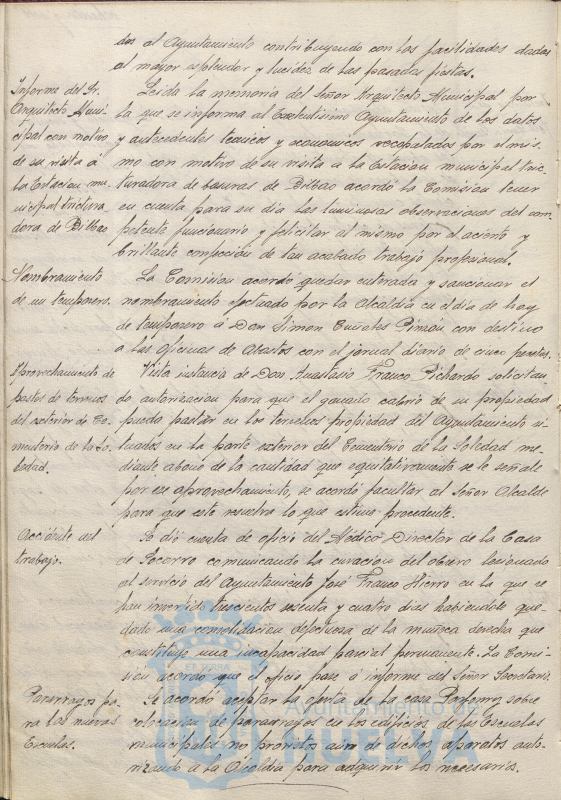 dos el Ayuntamiento contribuyendo con las facilidades dadas
al mayor esplendor y lucidez de las pasadas fiestas.
Informe del Sr.
Arquitecto Muni-
cipal con motivo
de su visita a
la Estacion mu-
nicipal tritura-
dora de Bilbao
Leida la memoria del Señor Arquitecto Municipal por
la que se informa al Excelentisimo Ayuntamiento de los datos
y antecedentes tecnicos y economicos recopilados por el mis-
mo con motivo de su visita a la Estacion municipal tri-
turadora de basuras de Bilbao acordó la Comision tener
en cuenta para su dia las luminosas observaciones del com-
petente funcionario y felicitar al mismo por el acierto y
brillante confeccion de tan acabado trabajo profesional.
Nombramiento
de un temporero.
La Comision acordó quedar enterada y sancionar el
nombramiento efectuado por la Alcaldia en el dia de hoy
de temporero a Don Simon Pinzon con destino
a las oficinas de Abastos con el jornal diario de cinco pesetas.
Aprovechamiento de
pastos de terrenos
del exterior de Ce-
menterio de la So-
ledad.
Vista instancia de Don Anastasio Franco Pichardo solicitan-
do autorizacion para que el ganado cabrio de su propiedad
pueda pastar en los terrenos propiedad del Ayuntamiento si-
tuados en la parte exterior del Cementerio de la Soledad me-
diante abono de la cantidad que equitativamente se le señale
por ese aprovechamiento, se acordó facultar al Señor Alcalde
para que este resuelva lo que estime procedente.
Accidente del
trabajo.
Se dió cuenta de oficio del Médico Director de la Casa
de Socorro comunicando la curacion del obrero lesionado
al servicio del Ayuntamiento José Franco Hierro en la que se
han invertido trescientos sesenta y cuatro dias habiendole que-
dado una consolidacion defectuosa de la muñeca derecha que
constituye una incapacidad parcial permanente. La Comi-
sion acordó que el oficio pase a informe del Señor Secretario.
Pararrayos pa-
ra las nuevas
Escuelas.
Se acordó aceptar la oferta de la casa sobre
colocacion de pararrayos en los edificios de las Escuelas
municipales no provistos aun de dichos aparatos auto-
rizando a la Alcaldia para adquirir los necesarios.
ET TERRA
Ayuntamiento de
HUELVA